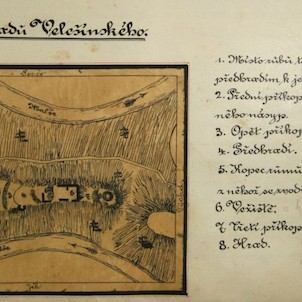 radu Velešínského.
1. Místo rubů t
předhradím k je
2. Přední příkop
něho násyp.
3. Opět příkop
4. Předhradí.
5. Kopec rumu
z něhož se vod
6. Vežiště.
7. Třetí příkop
8. Hrad.
Sever
Malše
Jih